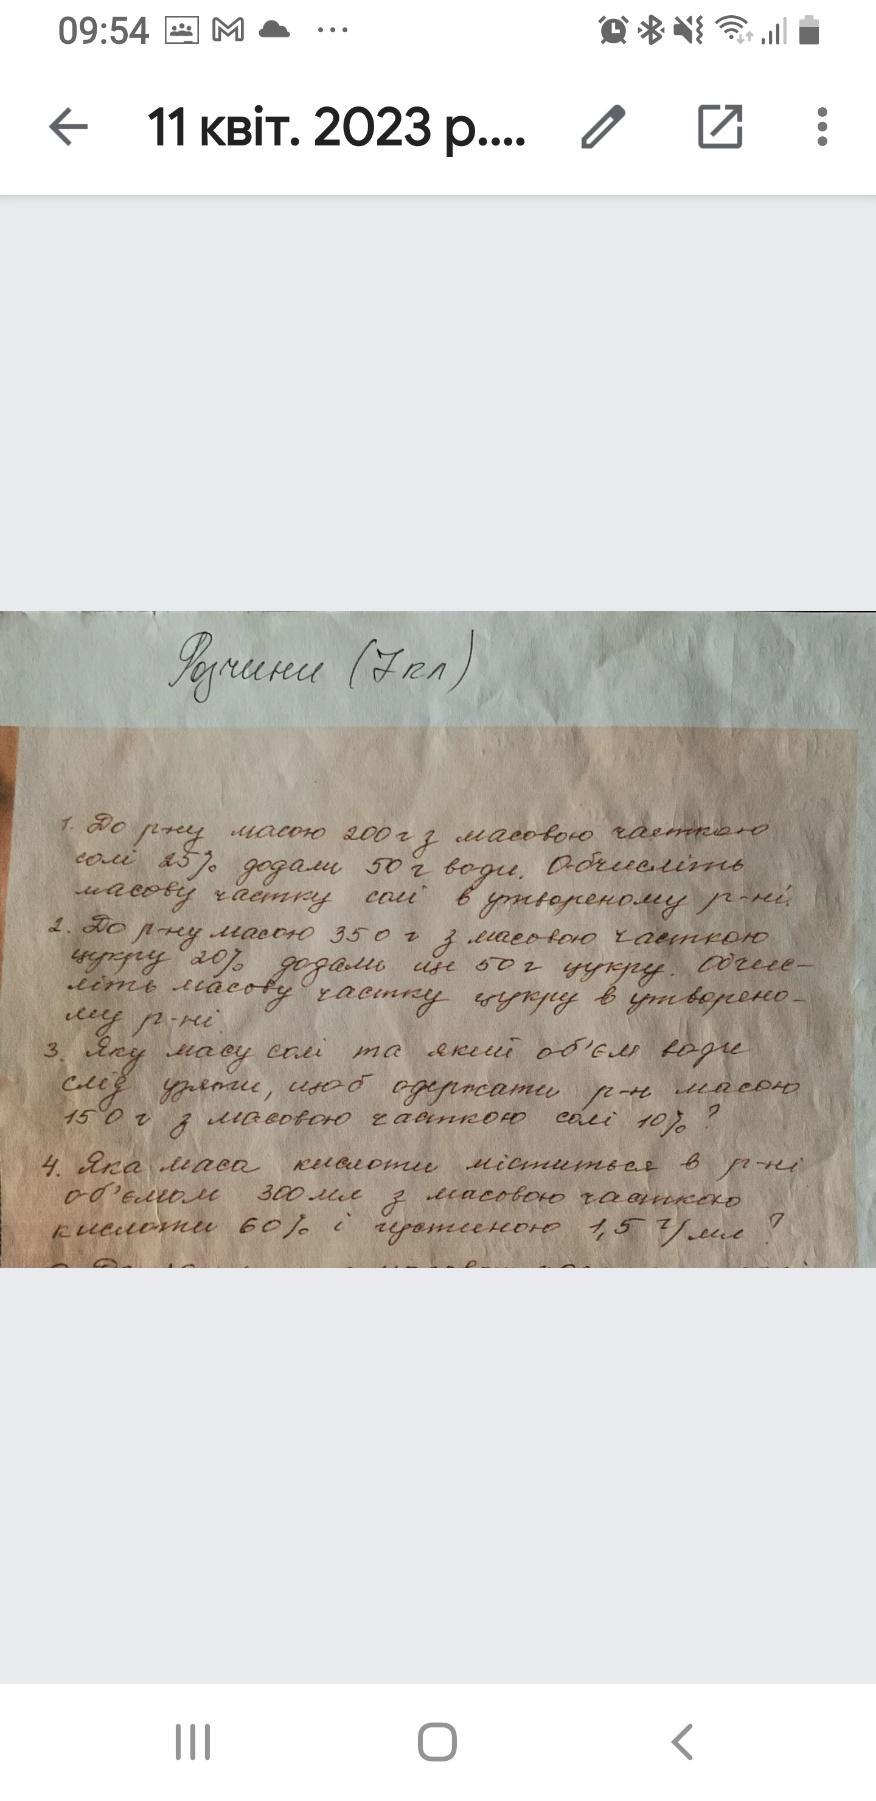 09:54
11 квіт. 2023 р....
Розчини (7 кл)
1. До р-ну масою 200 г з масовою часткою
солі 25% додали 50 г води. Обчисліть
масову частку солі в утвореному р-ні.
2. До р-ну масою 350 г з масовою часткою
цукру 20% додали ще 50 г цукру. Обчис-
літь масову частку цукру в утворено-
му р-ні.
3. Яку масу солі та який об'єм води
слід узяти, щоб одержати р-н масою
150 г з масовою часткою солі 10%?
4. Яка маса кислоти міститься в р-ні
об'ємом 300 мл з масовою часткою
кислоти 60% і густиною 1,5 г/мл?